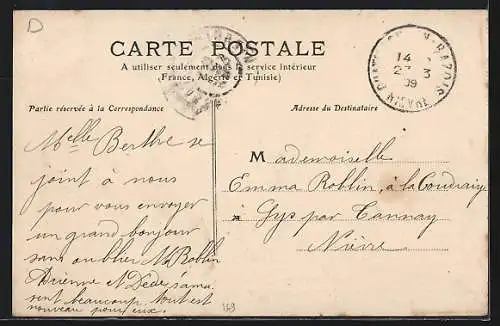 D
CARTE POSTALE
A utiliser seulement dans le service Intérieur
(France, Algérie et Tunisie)
14
27 3
09
NIEVRE
Partie réservée à la Correspondance
Adresse du Destinataire
Melle Berthe se
joint à nous
pour vous envoyer
un grand bonjour
sans oublier Mr Roblin
Adrienne et Dédé
sont beaucoup tout est
nouveau pour eux.
Mademoiselle
Emma Roblin, à la Coudraie
à Lys par Tannay
Nièvre